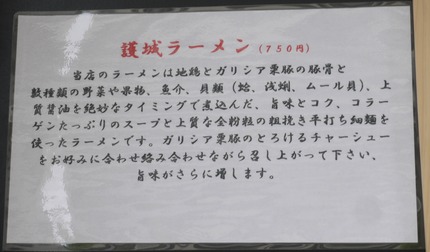 護城ラーメン(750円)
当店のラーメンは地鶏とガリシア栗豚の豚骨と
数種類の野菜や果物、魚介、貝類(蛤、浅蜊、ムール貝)、上
質醤油を絶妙なタイミングで煮込んだ、旨味とコク、コラー
ゲンたっぷりのスープと上質な全粉粒の粗挽き平打ち細麺を
使ったラーメンです。ガリシア栗豚のとろけるチャーシュー
をお好みに合わせ絡み合わせながら召し上がって下さい、
旨味がさらに増します。